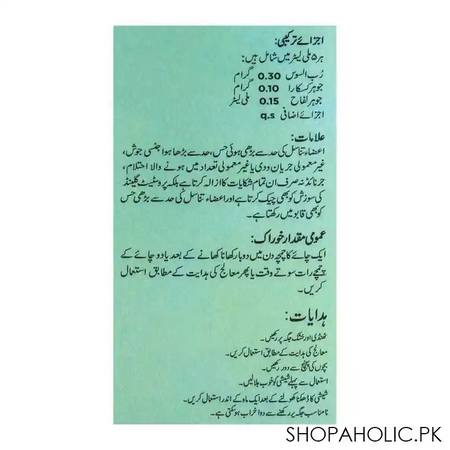 اجزائے ترکیبی:
ہر ۵ ملی لیٹر میں شامل ہیں:
رُب السوس 0.30 گرام
جوہر کسکارا 0.10 گرام
جوہر لفاح 0.15 ملی لیٹر
اجزائے اضافی q.s
علامات:
اعضاء تناسل کی حد سے بڑھی ہوئی حس، حد سے بڑھا ہوا جنسی جوش،
غیر معمولی جریان ودی یا غیر معمولی تعداد میں ہونے والا احتلام،
جرنائڈ نہ صرف ان تمام شکایات کا ازالہ کرتا ہے بلکہ پروسٹیٹ گلینڈ
کی سوزش کو بھی چیک کرتا ہے اور اعضاء تناسل کی حد سے بڑھی حس
کو بھی قابو میں رکھتا ہے۔
عمومی مقدار خوراک:
ایک چائے کا چمچہ دن میں دو بار کھانا کھانے کے بعد یا دو چائے کے
چمچے رات سوتے وقت یا پھر معالج کی ہدایت کے مطابق استعمال
کریں۔
ہدایات:
ٹھنڈی اور خشک جگہ پر رکھیں۔
معالج کی ہدایت کے مطابق استعمال کریں۔
بچوں کی پہنچ سے دور رکھیں۔
استعمال سے پہلے شیشی کو خوب ہلالیں۔
شیشی کا ڈھکنا کھولنے کے بعد ایک ماہ کے اندر استعمال کریں۔
نامناسب جگہ پر رکھنے سے دوا خراب ہوسکتی ہے۔
SHOPAHOLIC.PK